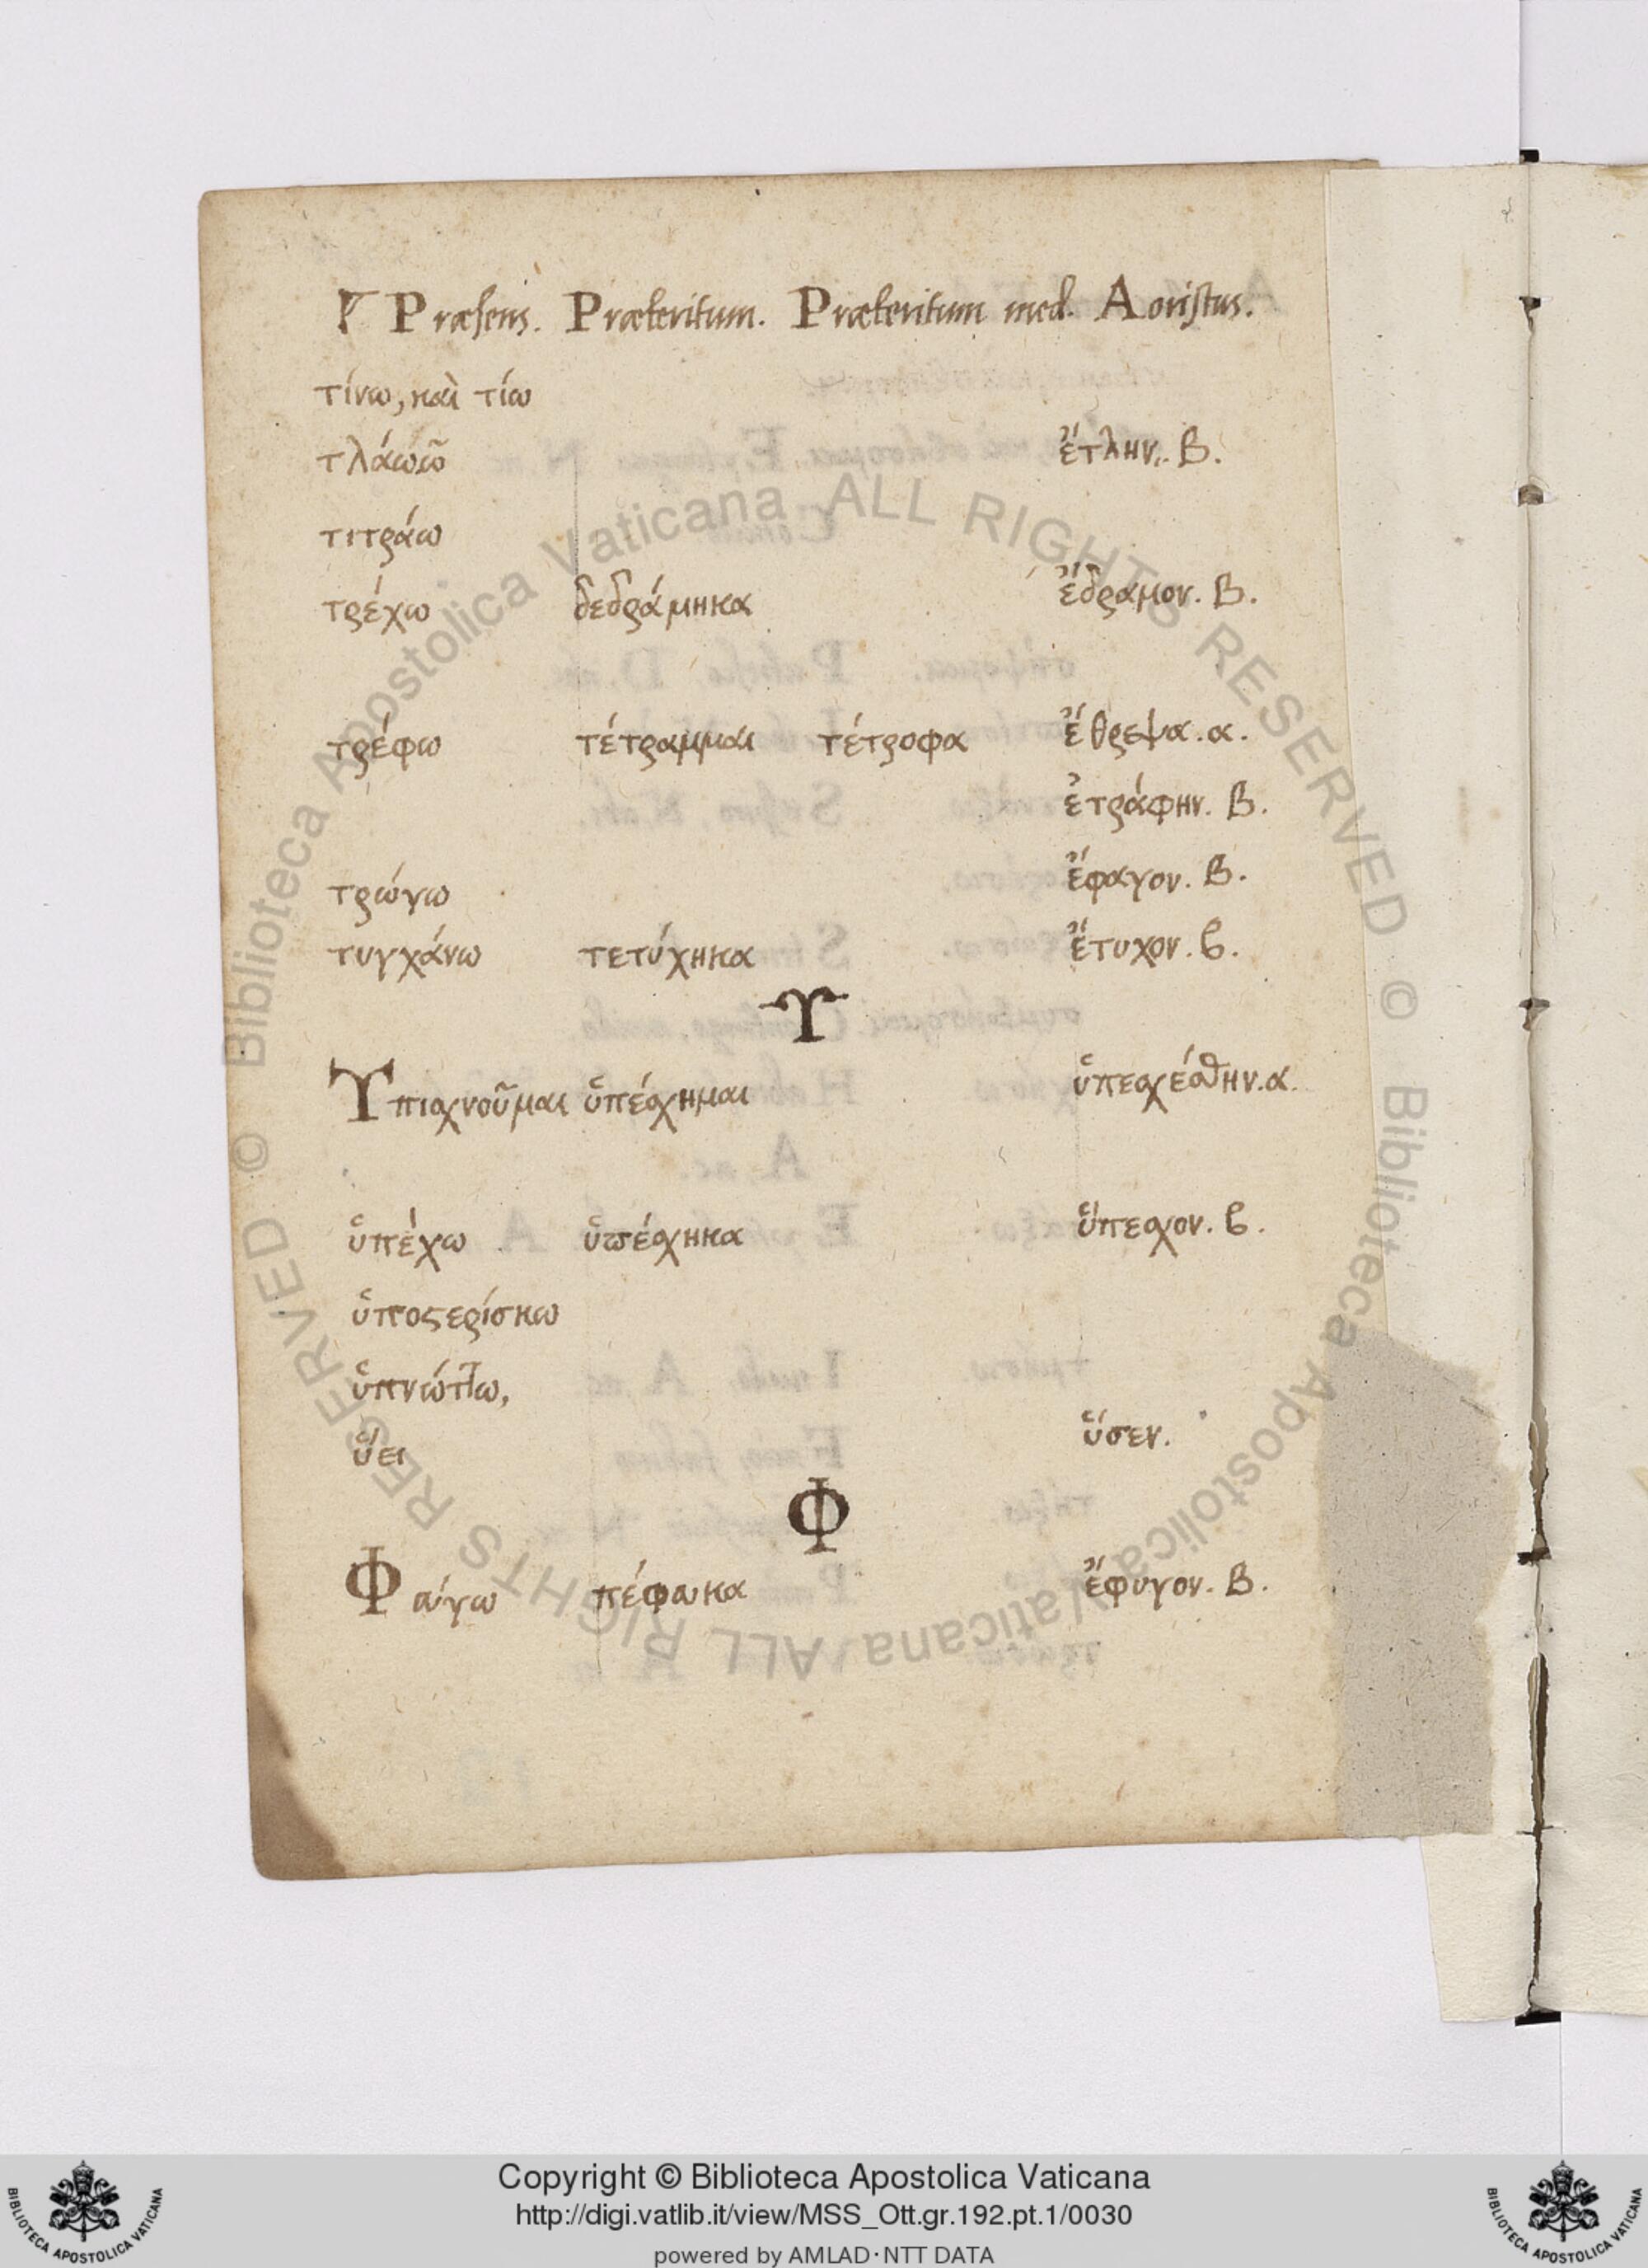 Præsens. Præteritum. Præteritum med. Aoristus.
τίνω, καὶ τίω
τλάωῶ ἔτλην. β.
τιτράω
τρέχω δεδράμηκα ἔδραμον. β.
τρέφω τέτραμμαι τέτροφα ἔθρεψα. α.
ἐτράφην. β.
τρώγω ἔφαγον. β.
τυγχάνω τετύχηκα ἔτυχον. β.
Υ
Υπισχνοῦμαι ὑπέσχημαι ὑπεσχέθην. α.
ὑπέχω ὑπέσχηκα ὕπεσχον. β.
ὑποστερίσκω
ὑπνώττω,
ὕει ὗσεν.
Φ
Φεύγω πέφευκα ἔφυγον. β.
Biblioteca Apostolica Vaticana ALL RIGHTS RESERVED ©
Biblioteca Apostolica Vaticana ALL RIGHTS RESERVED ©
Copyright © Biblioteca Apostolica Vaticana
http://digi.vatlib.it/view/MSS_Ott.gr.192.pt.1/0030
powered by AMLAD·NTT DATA
BIBLIOTECA APOSTOLICA VATICANA
BIBLIOTECA APOSTOLICA VATICANA